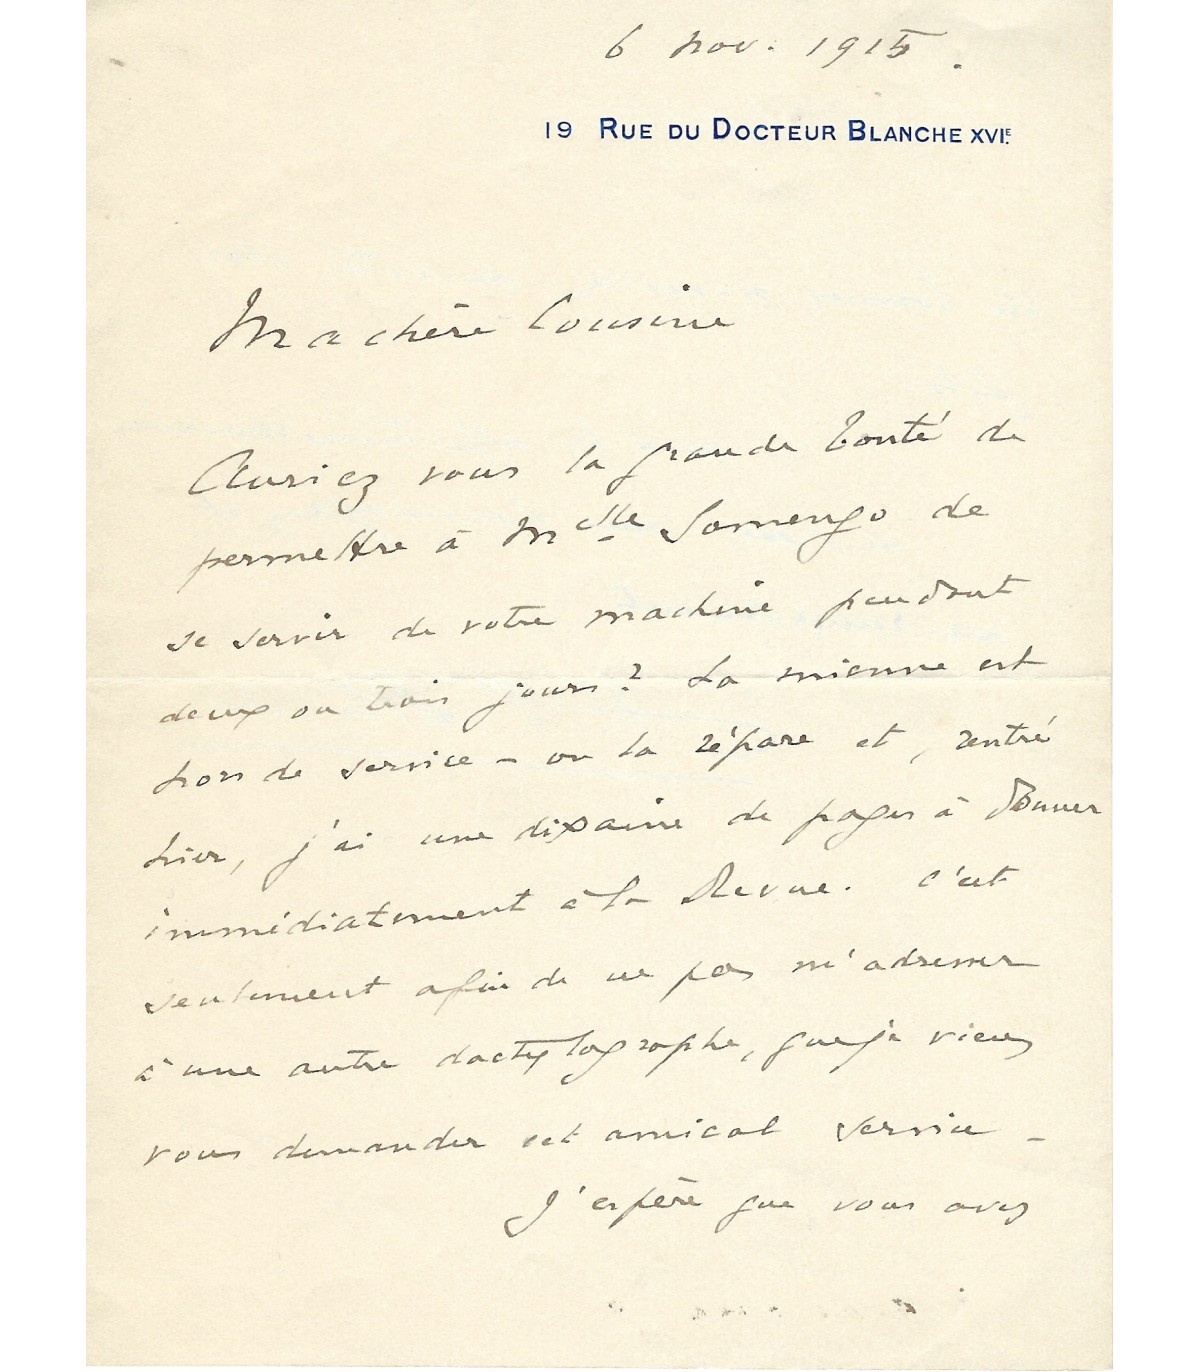 6 nov. 1915.
19 RUE DU DOCTEUR BLANCHE XVIE.
Ma chère Cousine
Auriez vous la grande bonté de
permettre à Melle Somengo de
se servir de votre machine pendant
deux ou trois jours? La mienne est
hors de service - on la répare et, rentré
hier, j'ai une dixaine de pages à donner
immédiatement à la Revue. C'est
seulement afin de ne pas m'adresser
à une autre dactylographe, que je viens
vous demander cet amical service -
J'espère que vous avez